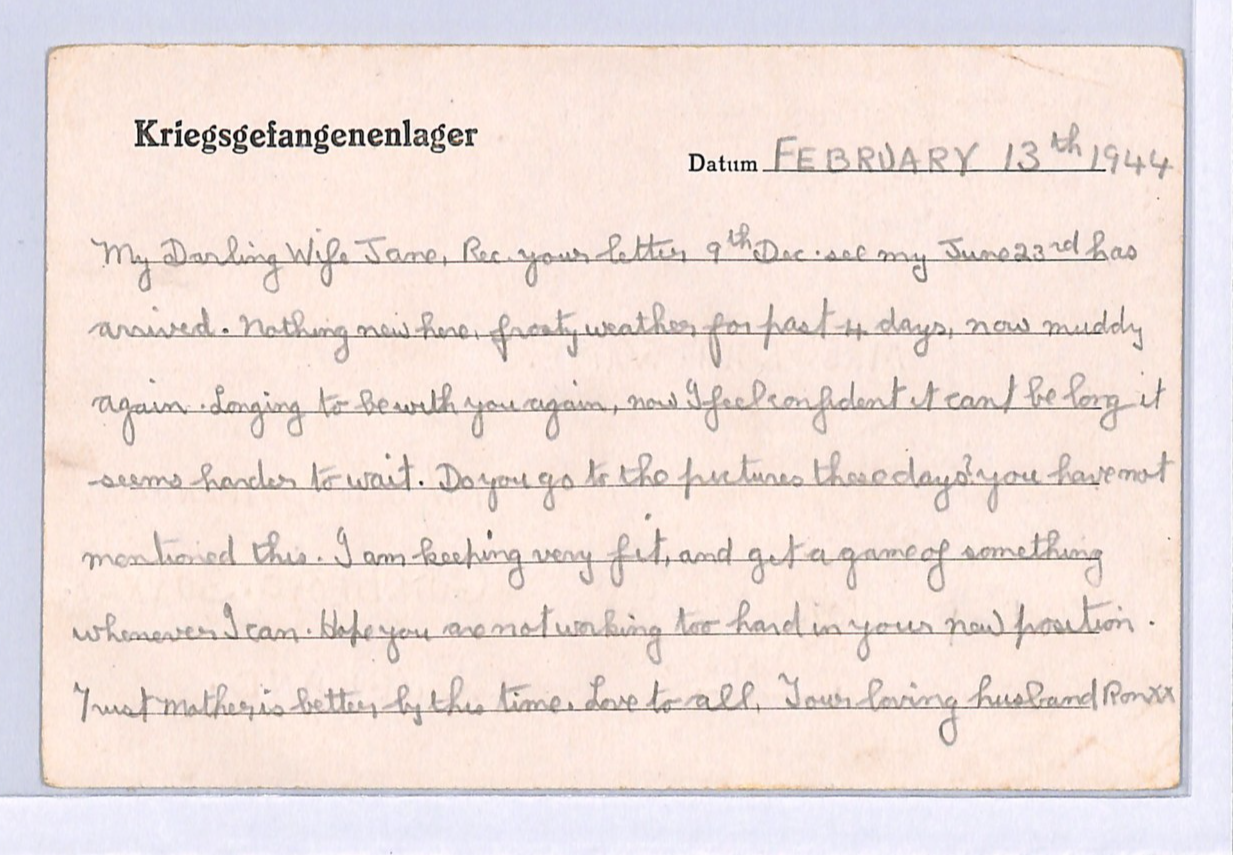 Kriegsgefangenenlager
Datum FEBRUARY 13th 1944
My Darling Wife Jane, Rec. your letter 9th Dec. see my June 23rd has
arrived. Nothing new here, frosty weather for past 4 days, now muddy
again. Longing to be with you again, now I feel confident it cant be long it
seems harder to wait. Do you go to the pictures these days? you have not
mentioned this. I am keeping very fit, and get a game of something
whenever I can. Hope you are not working too hard in your new position.
Trust Mother is better by this time. Love to all. Your loving husband Ron xx